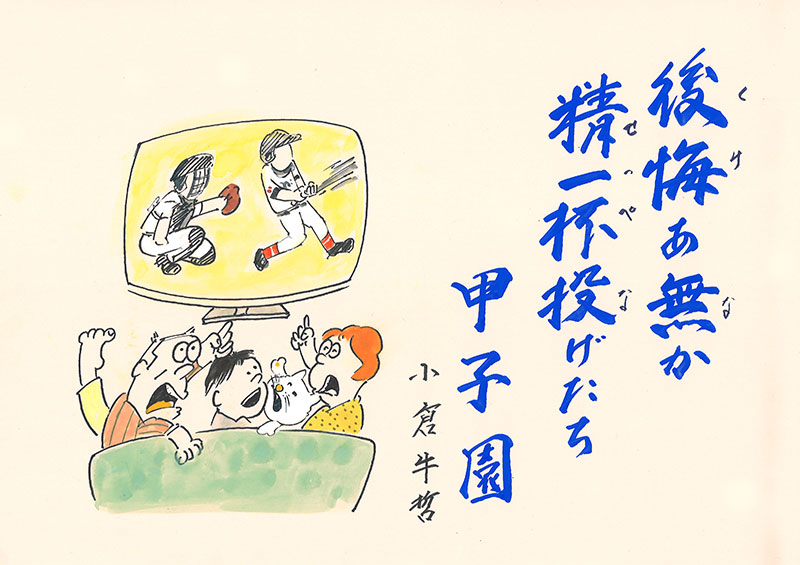 くけな
後悔あ無か
せっぺな
精一杯投げたち
甲子園
小倉牛哲